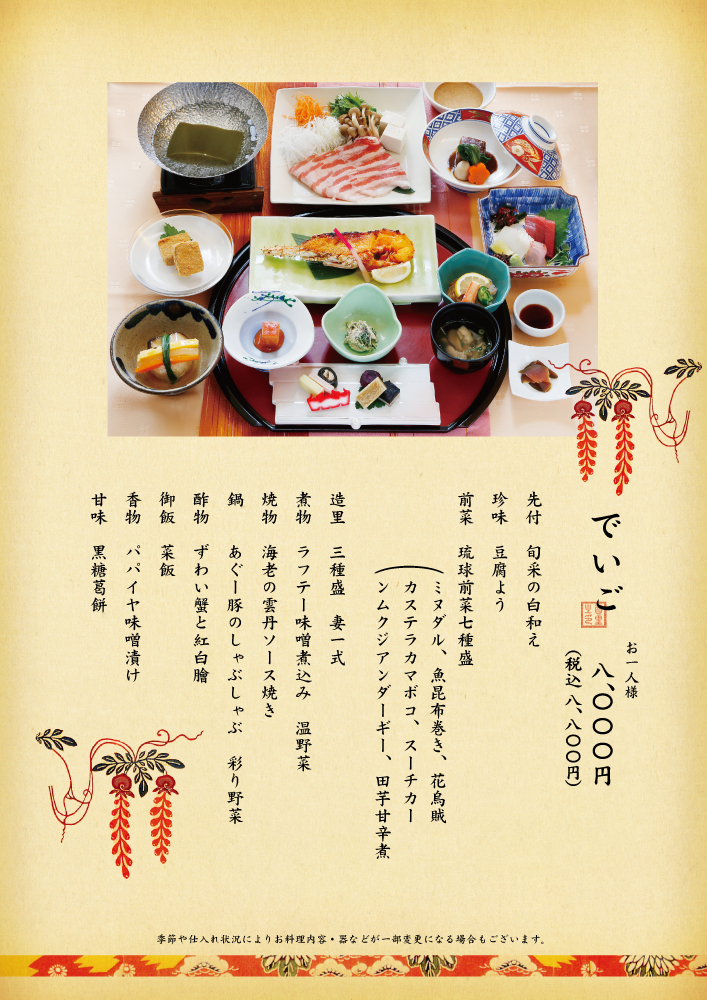 でいご
お一人様
八、〇〇〇円
(税込 八、八〇〇円)
先付 旬采の白和え
珍味 豆腐よう
前菜 琉球前菜七種盛
(ミヌダル、魚昆布巻き、花烏賊
カステラカマボコ、スーチカー
ンムクジアンダーギー、田芋甘辛煮
造里 三種盛 妻一式
煮物 ラフテー味噌煮込み 温野菜
焼物 海老の雲丹ソース焼き
鍋 あぐー豚のしゃぶしゃぶ 彩り野菜
酢物 ずわい蟹と紅白膾
御飯 菜飯
香物 パパイヤ味噌漬け
甘味 黒糖葛餅
季節や仕入れ状況によりお料理内容・器などが一部変更になる場合もございます。